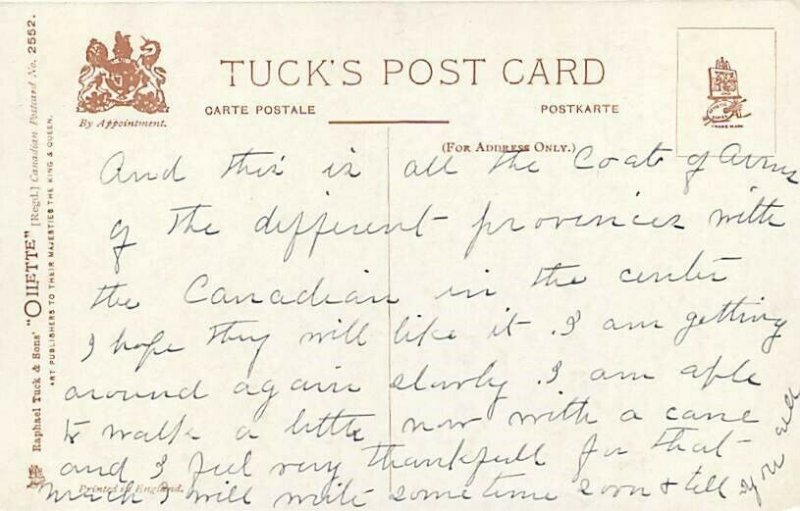 TUCK'S POST CARD
CARTE POSTALE
POSTKARTE
By Appointment.
(FOR ADDRESS ONLY.)
TRADE MARK
Raphael Tuck & Sons' "OILETTE" [Regd.] Canadian Postcard No. 2552.
ART PUBLISHERS TO THEIR MAJESTIES THE KING & QUEEN.
Printed in England.
And this is all the Coat of Arms
of the different provinces with
the Canadian in the center
I hope they will like it. I am getting
around again slowly. I am able
to walk a little now with a cane
and I feel very thankfull for that
much I will write sometime soon & tell
you all